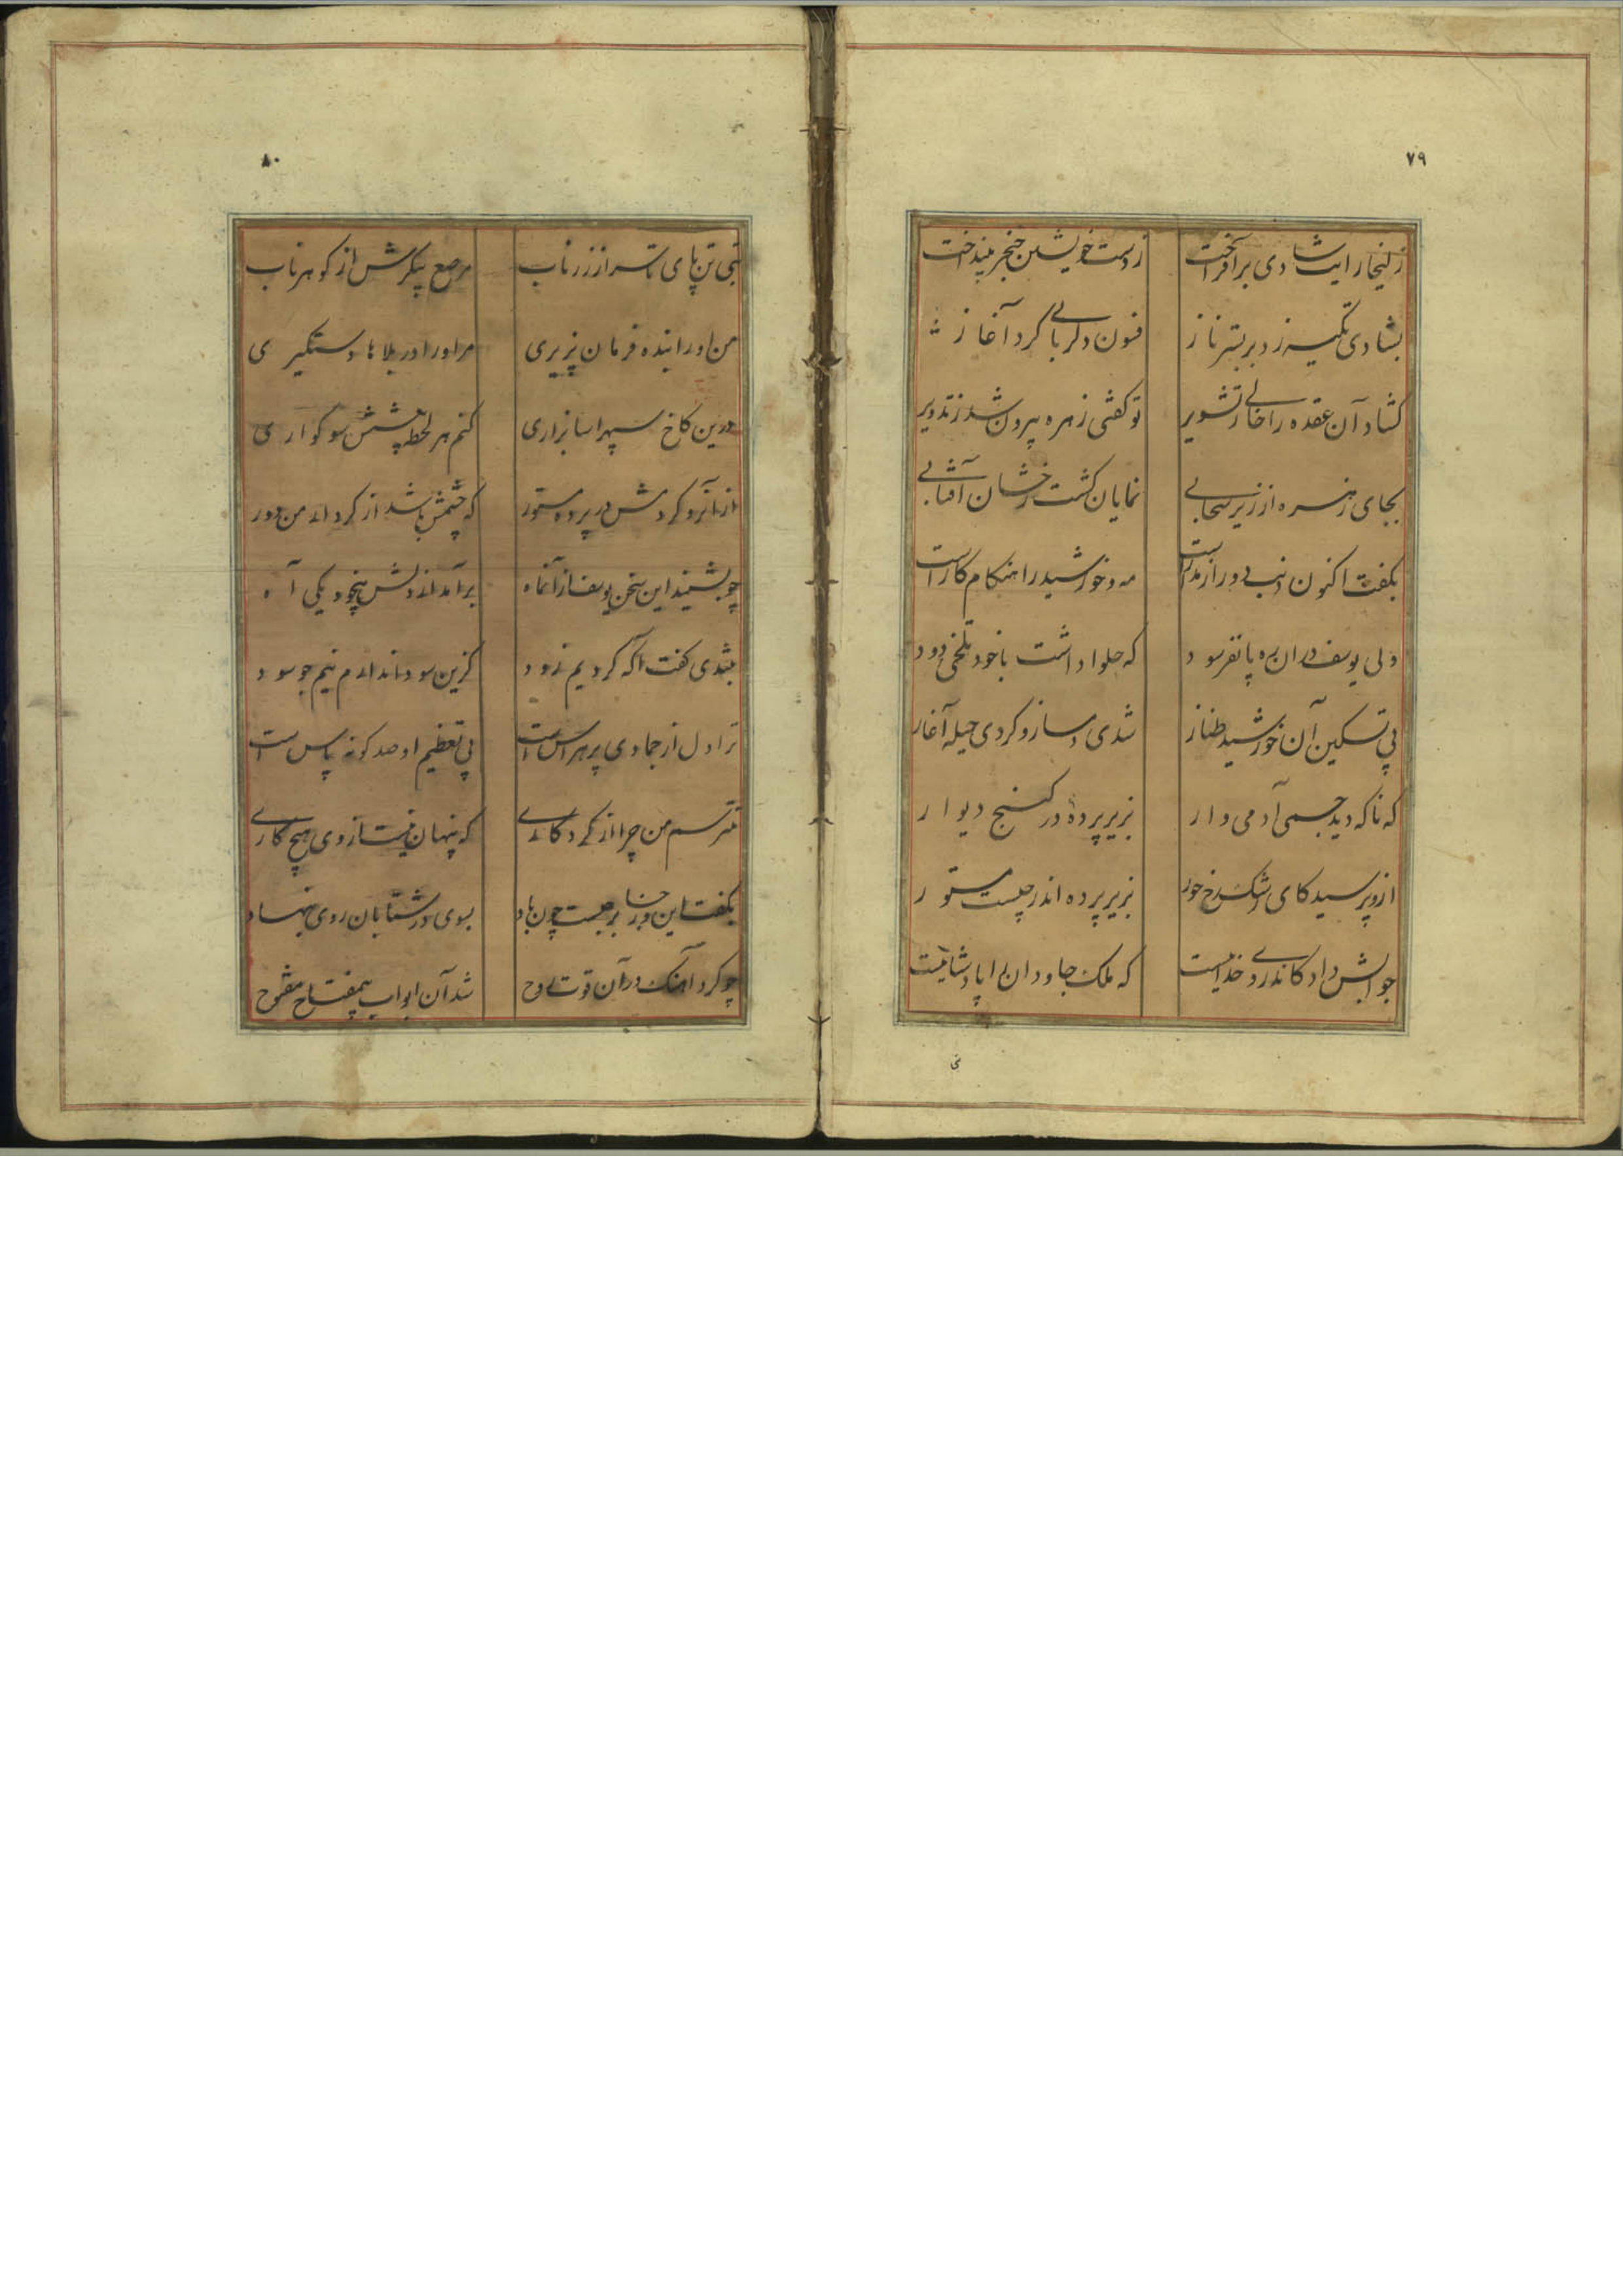 ٧٩
زلیخا رایت شادی برافراخت ز دست خویشتن خنجر بینداخت
بشادی تکیه زد بر بستر ناز فسون دلربایی کرد آغاز
کشاد آن عقده را خالی ز تشویر تو کفتی زهره بیرون شد ز تدویر
بجای زهره از زیر سحابی نمایان کشت رخشان آفتابی
بکفت اکنون ذنب دور از مدارست مه و خورشید را هنکام کارست
ولی یوسف دران ره پا نفرسود که حلوا داشت با خود تلخی دود
پی تسکین آن خورشید طناز شدی دمساز و کردی حیله آغاز
که ناکه دید جسمی آدمی وار بزیر پرده در کنج دیوار
ازو پرسید کای رشک رخ حور بزیر پرده اندر چیست مستور
جوابش داد کاندر وی خداییست که ملک جاودان را پادشاییست
ی
٨٠
بتی تن پای تا سر از زر ناب مرصع پیکرش از کوهر ناب
من او را بنده فرمان پزیری مر او را در بلاها دستگیری
درین کاخ سپهر اسا بزاری کنم هر لحظه پیشش سوکواری
از انرو کردمش در پرده مستور که چشمش باشد از کردار من دور
چو بشنید این سخن یوسف از آنماه برآمد از دلش بیخود یکی آه
بتندی کفت اکه کردیم زود کزین سودا ندارم نیم جو سود
ترا دل از جمادی پر هراس است پی تعظیم او صد کونه پاس است
نترسم من چرا از کردکاری که پنهان نیست از وی هیچ کاری
بکفت این وز جا برجست چون باد بسوی در شتابان روی بنهاد
چو کرد آهنک در آن قوت روح شد آن ابواب بیمفتاح مفتوح